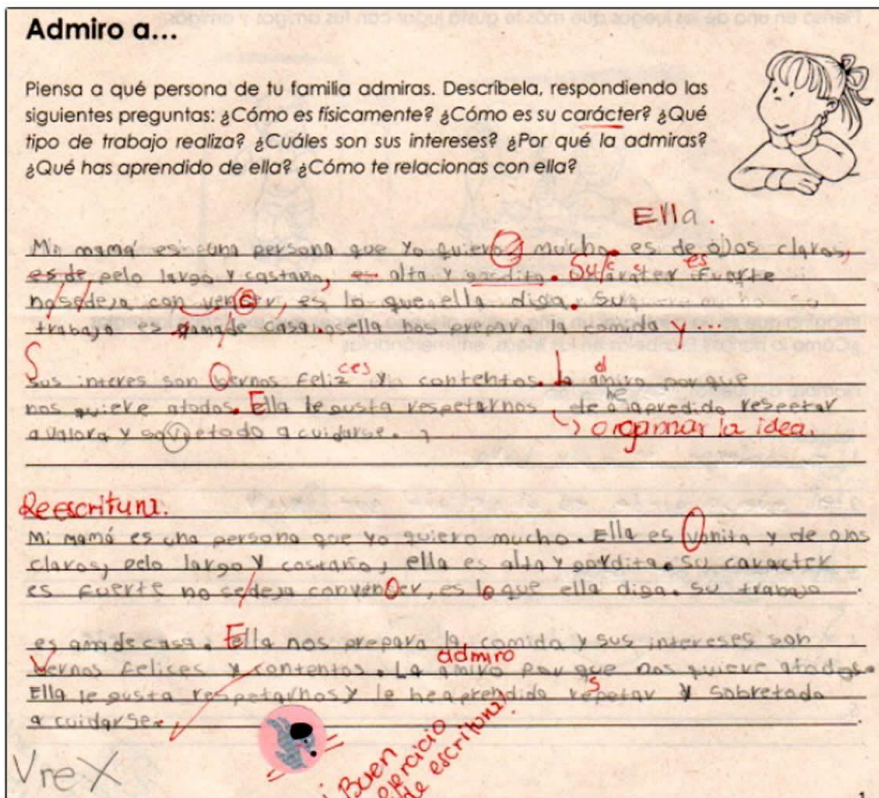 Admiro a...
Piensa a qué persona de tu familia admiras. Descríbela, respondiendo las
siguientes preguntas: ¿Cómo es físicamente? ¿Cómo es su carácter? ¿Qué
tipo de trabajo realiza? ¿Cuáles son sus intereses? ¿Por qué la admiras?
¿Qué has aprendido de ella? ¿Cómo te relacionas con ella?
Ella.
Mi mamá es una persona que yo quiero mucho. es de ojos claros,
es de pelo largo y castaño, alta y gordita. Su carácter es fuerte
no sedeja con vencer, es lo que ella diga. Su
trabajo es ama de casa. ella nos prepara la comida y ...
Sus interes son vernos feliz ces y contentos. la amiro porque
nos quiere atodos. Ella le gusta respetarnos de a he apredido respetar
a valora y sovretodo a cuidarse.
organizar la idea.
Reescritura.
Mi mamá es una persona que yo quiero mucho. Ella es vonita y de ojos
claros, pelo largo y castaño, ella es alta y gordita. su caracter
es fuerte no sedeja convencer, es lo que ella diga. su trabajo
es amadecasa. Ella nos prepara la comida y sus intereses son
vernos felices y contentos. La amiro por que nos quiere atodos.
admiro
Ella le gusta respetarnos y le heaprendido respetar y sobretodo
a cuidarse.
¡Buen
ejercicio
de escritura!
V re X
1